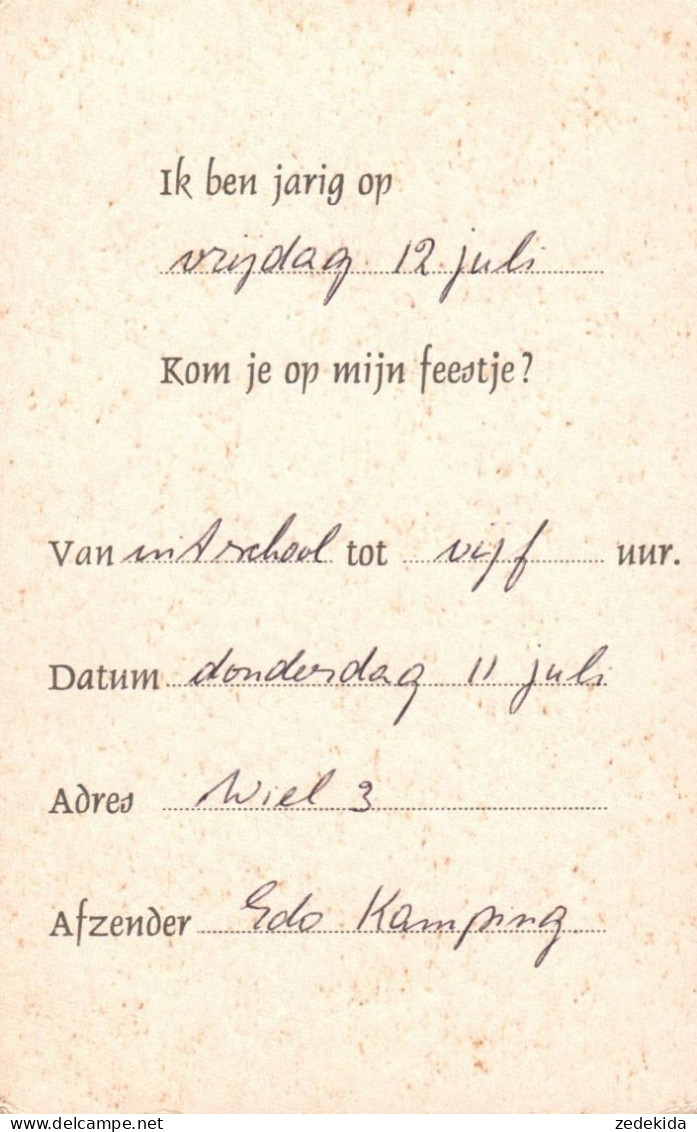 Ik ben jarig op
vrijdag 12 juli
Kom je op mijn feestje?
Van uit school tot vijf uur.
Datum donderdag 11 juli
Adres Wiel 3
Afzender Edo Kamping
zedekida